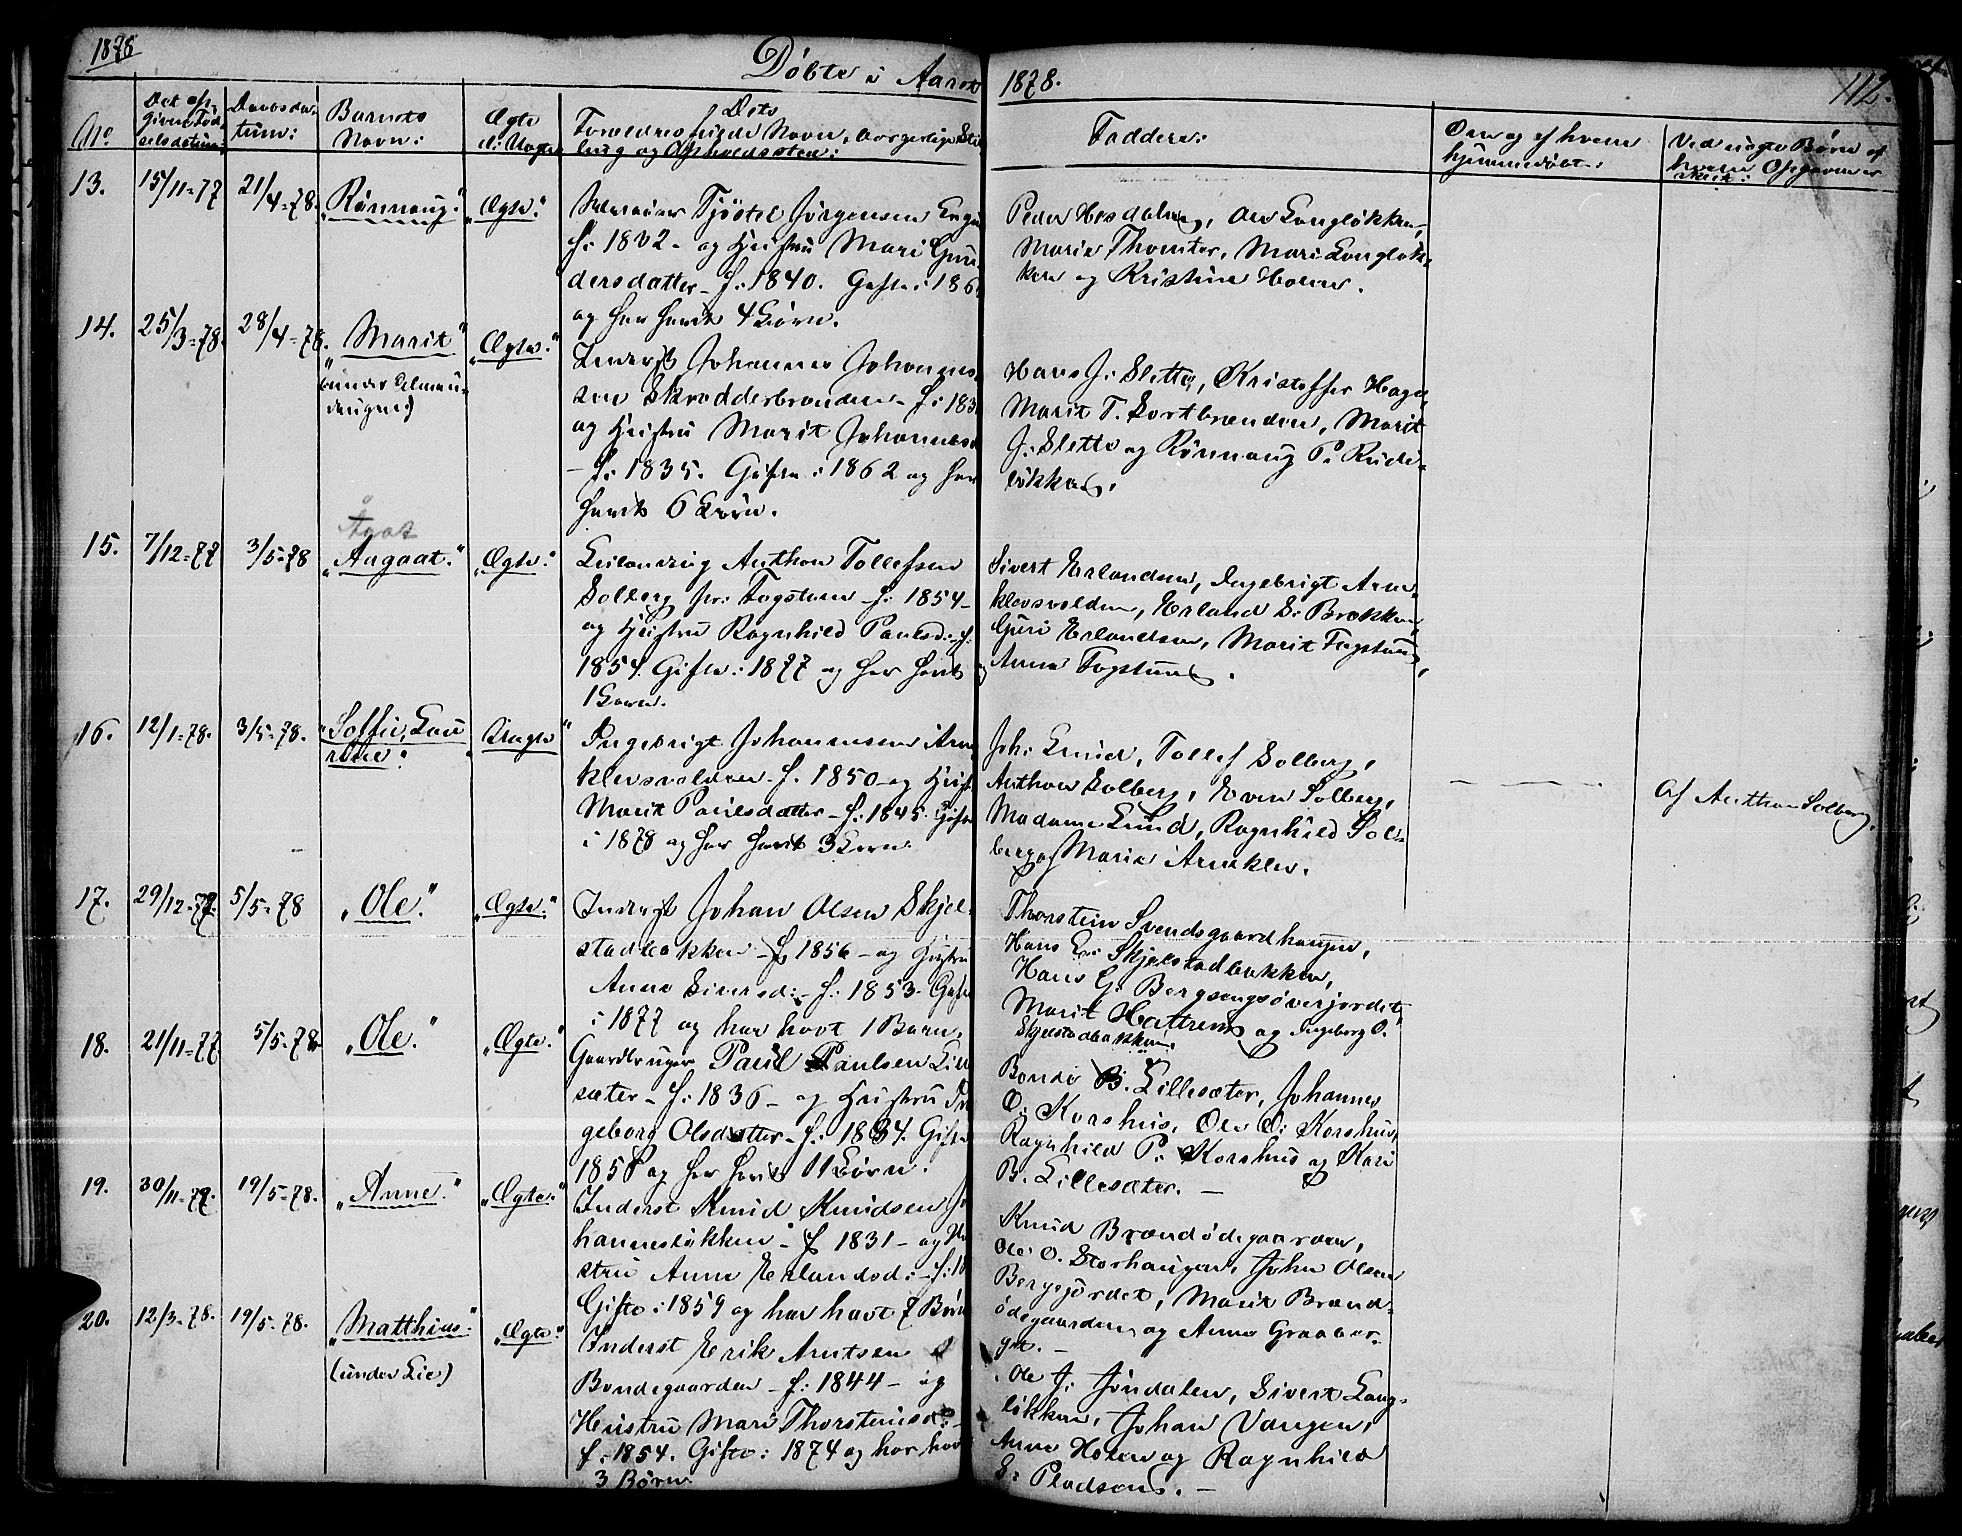 1878
Döbte i Aaret 1878.
112.
No.
Daabsda-
tum:
Barnets
Navn:
Ægte
Faddere:
Om og af hvem
hjemmedöbt:
Ved uægte Börn af
13. 15/11-77 21/4-78. "Rönnaug." "Ægte."
Tjöstel Jörgensen
f: 1832 - og Hustru Mari Gun
dersdatter - f: 1840. Gifte i 186
og har havt 4 Börn.
Marie Thomter, Mari Londlök-
ken og Kristine Holen.
14. 25/3-78. 28/4-78. "Marit" "Ægte."
Inderst Johannes Johannes
sen Skrædderbrenden - f: 183
og Hustru Marit Johannesd
- f: 1835. Gifte: 1862 og har
havt 6 Börn.
Hans J: Slette, Kristoffer Hage,
Marit T. Sortbrenden, Marit
J: Slette og Rönnaug P: Rude-
lökken.
15. 7/12-77 3/5-78 "Aagaat." "Ægte."
Anthon Tollefsen
Solberg f: 1854 -
og Hustru Ragnhild Paulsd: - f:
1854. Gifte: 1877 og har havt
1 Barn.
Sivert Erlandsen, Ingebrigt Arne-
klevsvolden, Erland S: Brekken,
Guri Erlandsen, Marit Fogstuen,
Anne Fogstuen.
16. 12/1-78. 3/5-78.
Ingebrigt Johannesen Arne
klevsvolden - f. 1850 - og Hust
Marit Paulsdatter - f: 1845. Gifte
i 1878 og har havt 3 Börn.
Joh: Lund, Tollef Solberg,
Anthon Solberg, Even Solberg,
Madame Lund, Ragnhild Sol-
berg og Marie Arneklev.
Af Anthon Solberg.
17. 29/12-77. 5/5-78 "Ole." "Ægte."
Inderst Johan Olsen Skjel-
stadbakken - f 1856 - og Hustru
Anne Siversd: - f: 1853. Gifte
i 1877 og har havt 1 Barn.
Thorstein Svendsgaardhaugen,
Hans E: Skjelstadbakken,
Hans G: Bergsengsöverjordet,
Marit Hattrem og Ingeborg O.
Skjelstadbakken.
18. 21/11-77 5/5-78 "Ole." "Ægte."
Gaardbruger Paul Paulsen Lill
sæter - f: 1836 - og Hustru In
geborg Olsdatter - f: 1834. Gifte
1858 og har havt 11 Börn.
B. Lillesæter, Johannes
O. Korshus, Ole O: Korshus,
Ragnhild P: Korshus og Kari
B. Lillesæter. -
19. 30/11-77. 19/5-78. "Anne." "Ægte."
Inderst Knud Knudsen Jo
hanneslökken - f 1831 - og Hu
stru Anne Erlandsd: - f: 18
Gifte: 1859 og har havt 7 Börn
Knud Brændödegaarden,
Ole O. Storhaugen, John Olsen
Bergsjordet, Marit Brænd-
ödegaarden og Anne Graaber-
get. -
20. 12/3-78. 19/5-78. "Matthias." "Ægte."
(under Lie)
Inderst Erik Arntsen
Bondegaarden - f: 1844 - og
Hustru Mari Thorsteinsd: -
f: 1854. Gifte: 1874 og har havt
3 Börn.
Ole J: Jöndalen, Sivert Lang-
lökken, Johan Vangen,
Anne Holen og Ragnhild
S: Pladsen. -